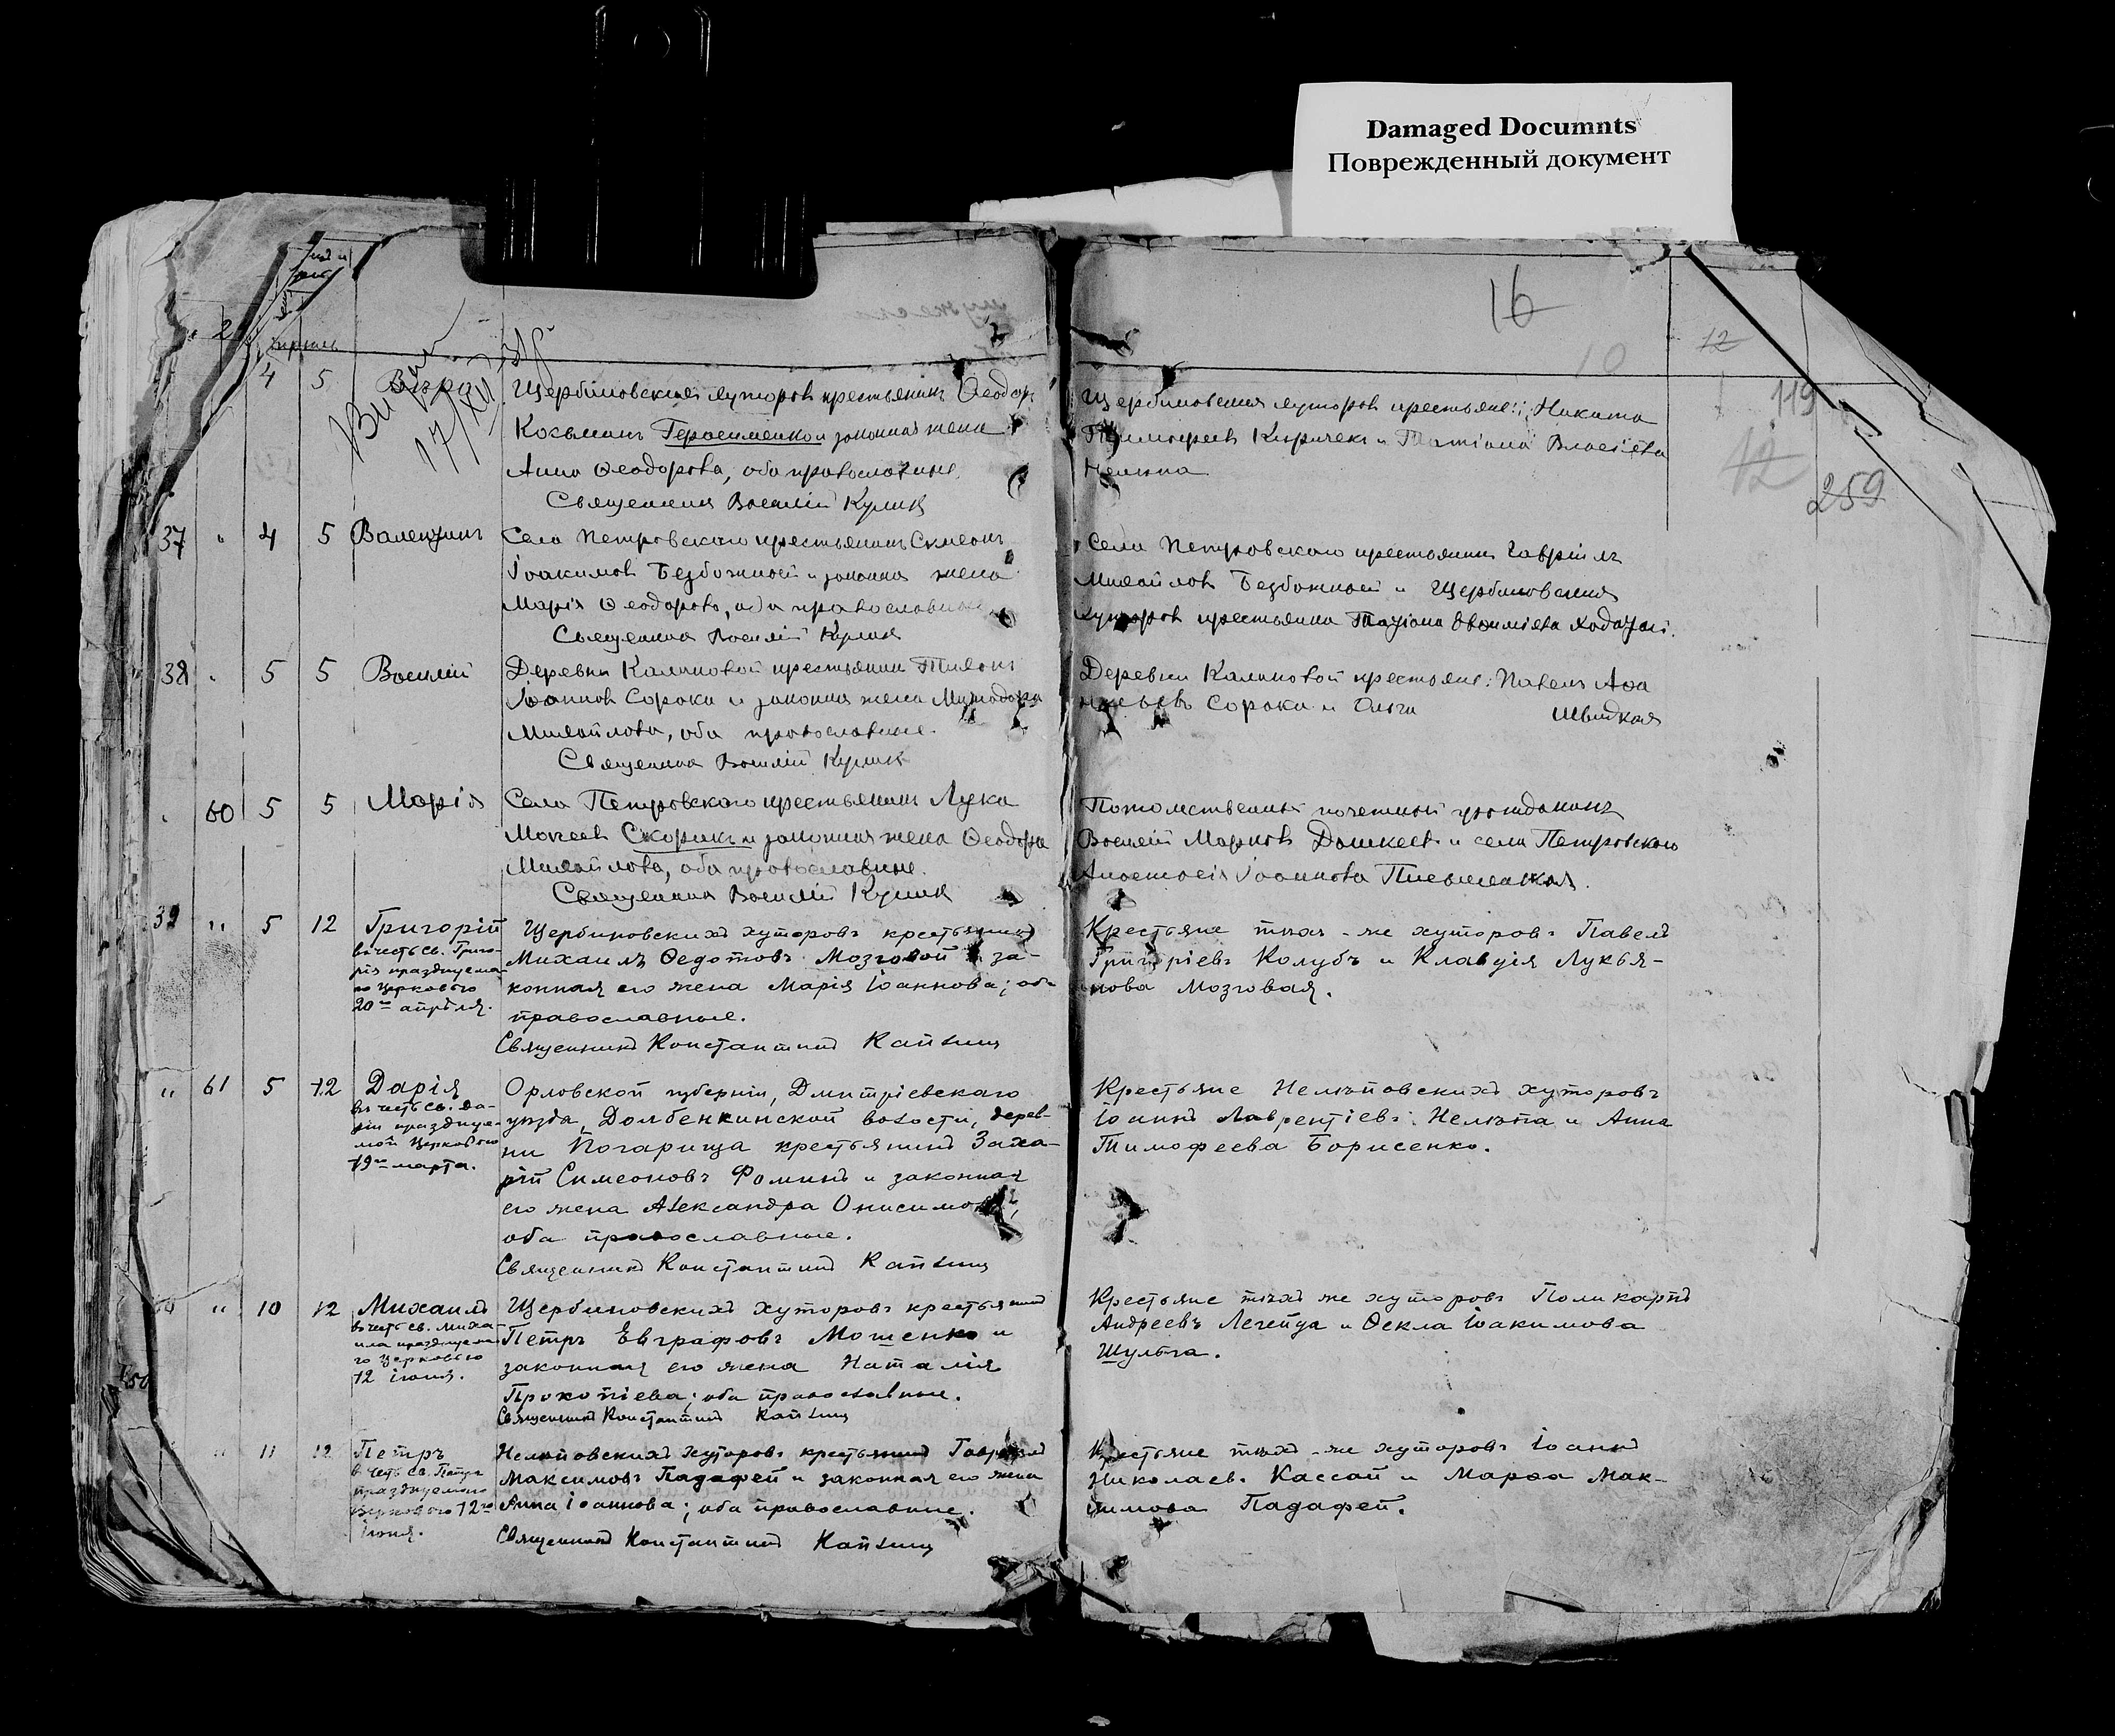 Damaged Documnts
Поврежденный документ
16
10
12
119
12
259
2
4 5 Вѣра
17/XII
Щербиновскихъ хуторовъ крестьянинъ Ѳеодоръ
Косьминъ Герасименко и законная жена
Анна Ѳеодорова, оба православные
Священникъ Василій Куликъ
Щербиновскихъ хуторовъ крестьяне: Никита
Тимофеевъ Киричекъ и Татіана Власіева
37 " 4 5 Валентинъ
Села Петровскаго крестьянинъ Симеонъ
Іоакимовъ Безбожный и законная жена
Марія Ѳеодорова, оба православные
Священникъ Василій Куликъ
Села Петровскаго крестьянинъ Гавріилъ
Михайловъ Безбожный и Щербиновскихъ
хуторовъ крестьянка Татіана
38 " 5 5 Василій
Деревни Калиновой крестьянинъ Тихонъ
Іоанновъ Сорока и законная жена Митродора
Михайлова, оба православные.
Священникъ Василій Куликъ
Деревни Калиновой крестьяне: Павелъ Аѳа
насьевъ Сорока и Ольга Швидкая
60 5 5 Марія
Села Петровскаго крестьянинъ Лука
Мокеевъ Скорикъ и законная жена Ѳеодора
Михайлова, оба православные.
Священникъ Василій Куликъ
Потомственный почетный гражданинъ
Василій Марковъ Дашкеев и села Петровскаго
Анастасія Іоаннова
39 " 5 12 Григорій
въ честь св. Григо-
рія празднуема-
го Церковью
20го апрѣля.
Щербиновскихъ хуторовъ крестьянинъ
Михаилъ Ѳедотовъ Мозговой и за-
конная его жена Марія Іоаннова; оба
православные.
Священникъ Константинъ Капһиц
Крестьяне тѣхъ-же хуторовъ Павелъ
Григоріевъ Колубъ и Клавдія Лукья-
нова Мозговая.
" 61 5 12 Дарія
въ честь св. Да-
ріи празднуе-
мой Церковью
19го марта.
Орловской губерніи, Дмитріевскаго
уѣзда, Долбенкинской волости, дерев-
ни Погарища крестьянинъ Заха-
рій Симеоновъ Фоминъ и законная
его жена Александра Онисимова,
оба православные.
Священникъ Константинъ
Крестьяне Нелѣповскихъ хуторовъ
Іоаннъ Лаврентіевъ Нелѣпа и Анна
Тимофеева Борисенко.
" 10 12 Михаилъ
въ честь св. Миха-
ила празднуема-
го Церковью
12 іюня.
Щербиновскихъ хуторовъ крестьянинъ
Петръ Евграфовъ Мошенко и
законная его жена Наталія
Прокопіева; оба православные.
Священникъ Константинъ
Крестьяне тѣхъ же хуторовъ Поликарпъ
Андреевъ Легейда и Ѳекла Іоакимова
Шульга.
" 11 12 Петръ
въ честь св. Петра
празднуемаго
Церковью 12го
іюня.
Нелѣповскихъ хуторовъ крестьянинъ Гавріилъ
Максимовъ Падафей и законная его жена
Анна Іоаннова; оба православные.
Священникъ Константинъ
Крестьяне тѣхъ-же хуторовъ Іоаннъ
Николаев. Кассай и Марѳа Мак-
симова Падафей.